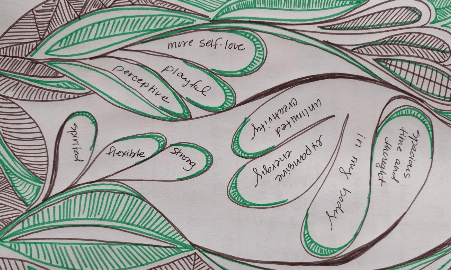 more self-love
playful
perceptive
spirited
flexible
strong
unlimited
creativity
expansive
energy
in my body
spacious
time and
thought